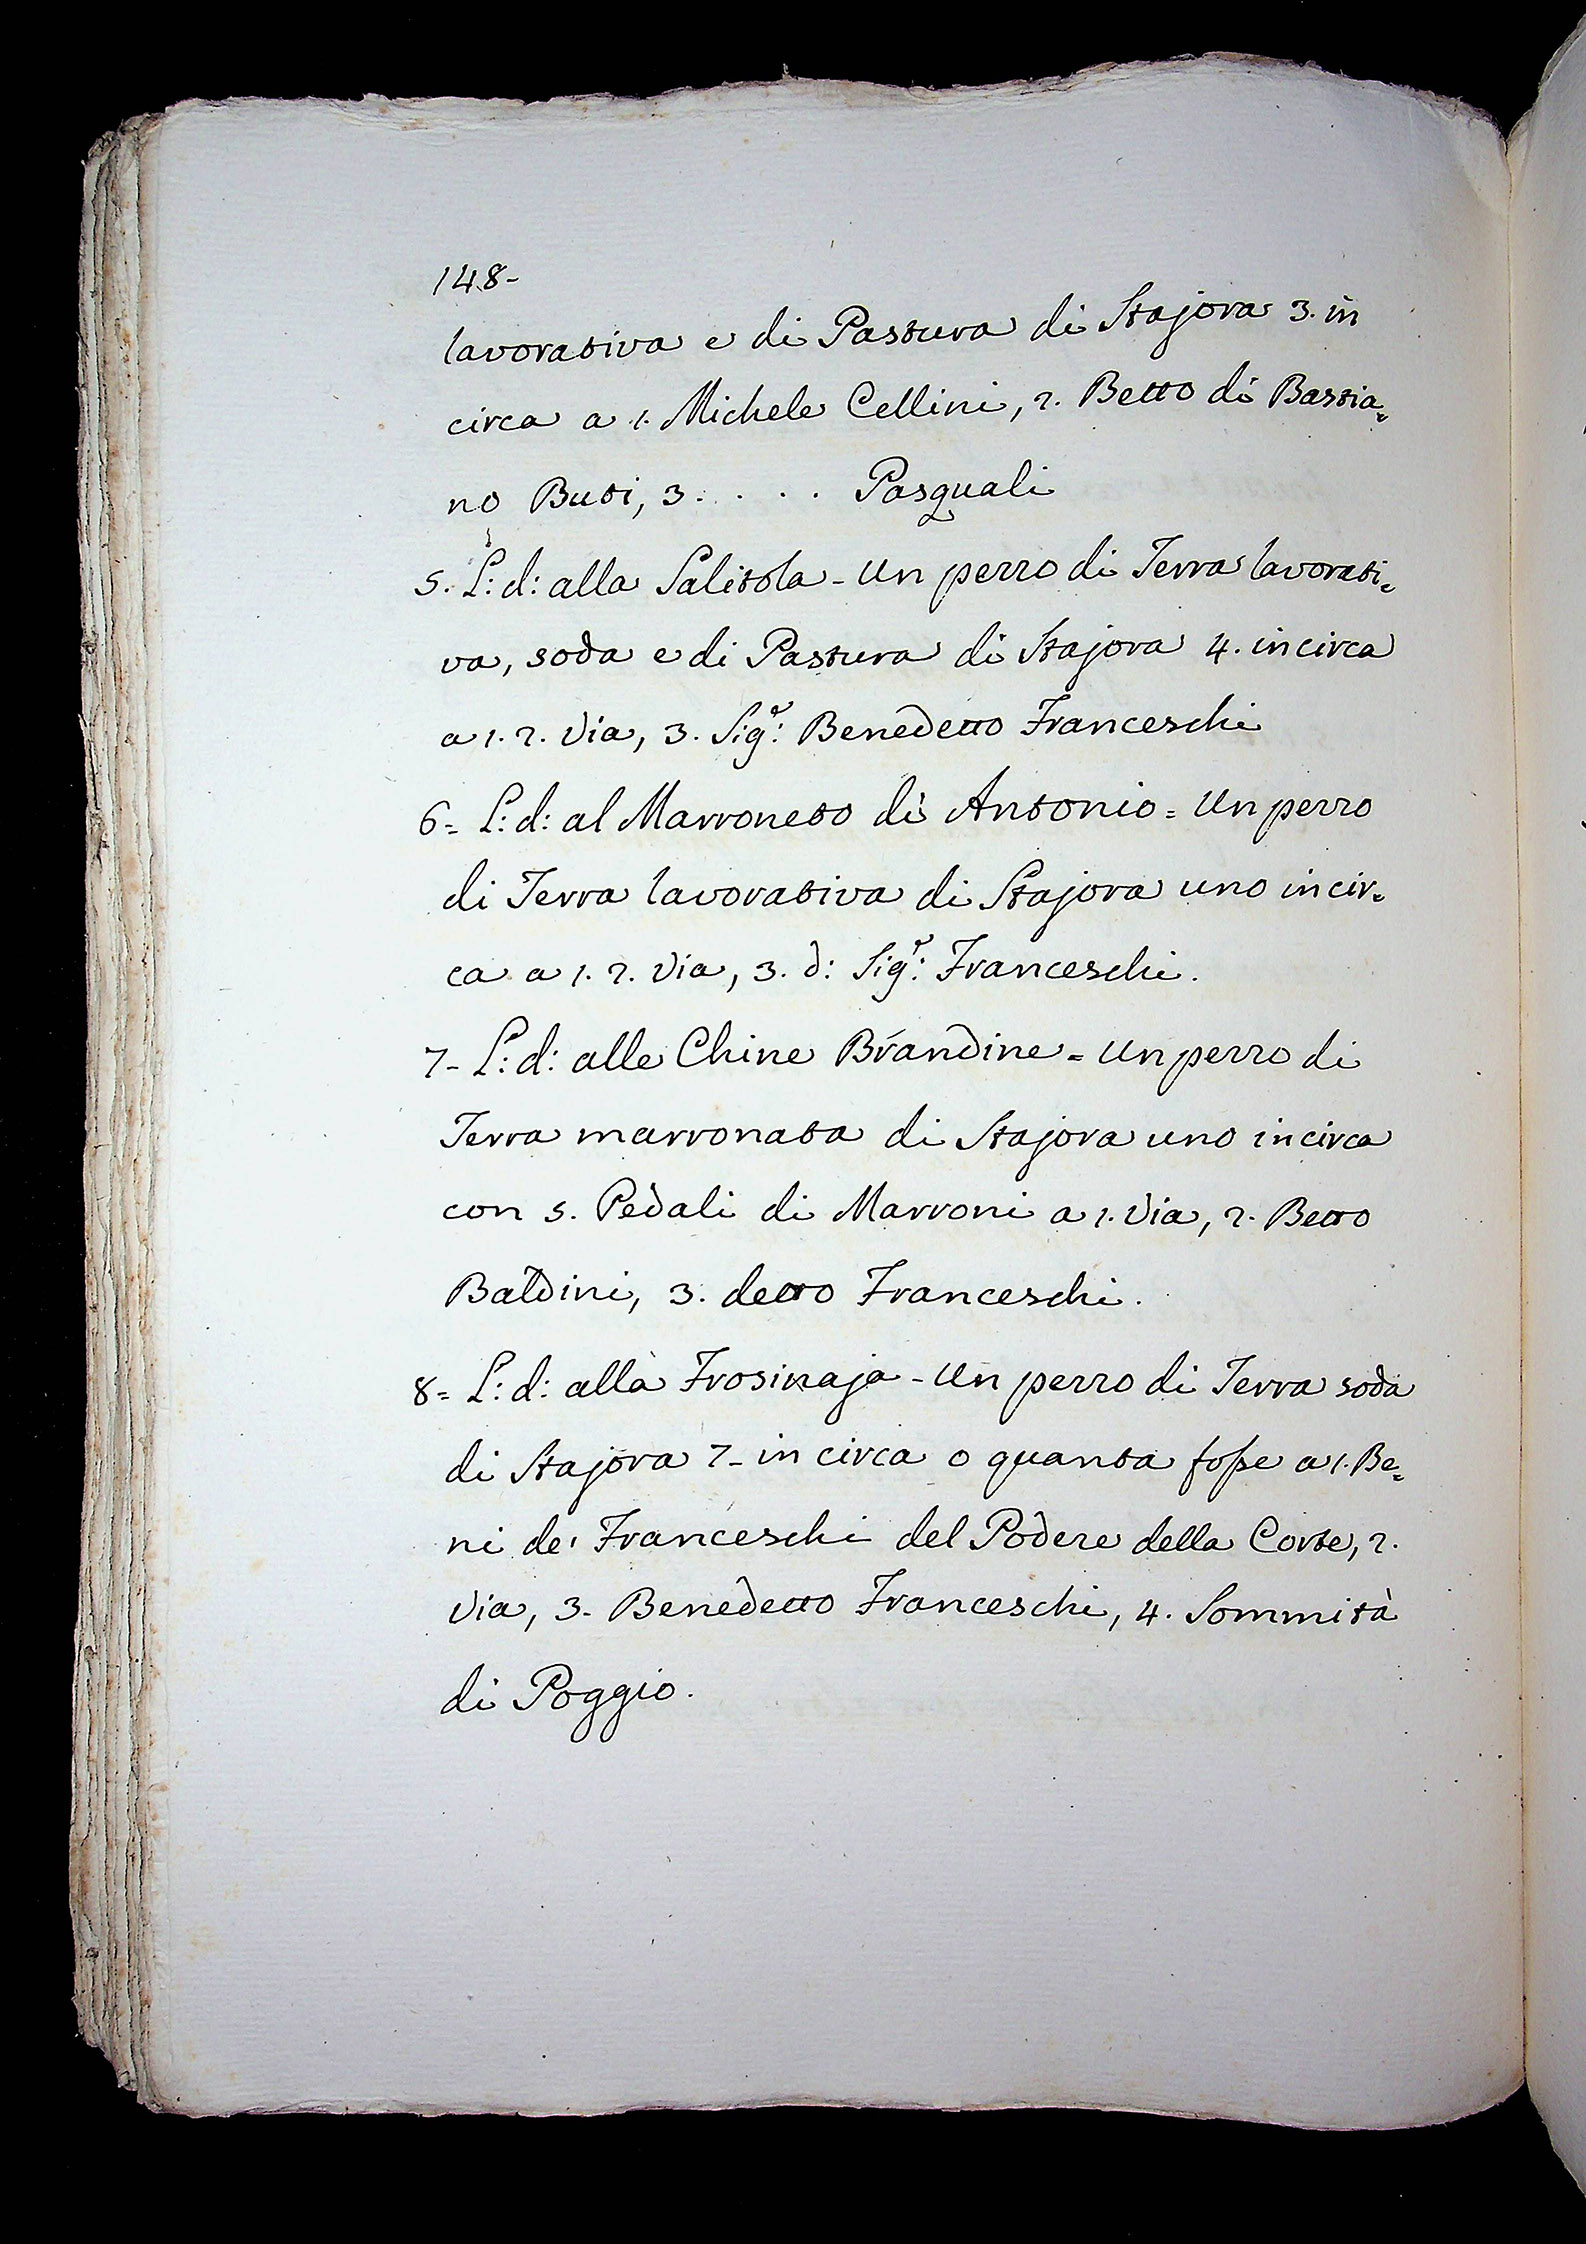 148-
lavorativa e di Pastura di Stajora 3. in
circa a 1. Michele Cellini, 2. Betto di Bastia=
no Buti, 3. . . . . Pasquali
5. L: d: alla Salitola - Un pezzo di Terra lavorati=
va, soda e di Pastura di Stajora 4. incirca
a 1. 2. Via, 3. Sigr: Benedetto Franceschi
6= L: d: al Marroneto di Antonio = Un pezzo
di Terra lavorativa di Stajora uno incir=
ca a 1. 2. Via, 3. d: Sigr: Franceschi.
7- L: d: alle Chine Brandine = Un pezzo di
Terra marronata di Stajora uno incirca
con 5. Pedali di Marroni a 1. Via, 2. Betto
Baldini, 3. detto Franceschi.
8= L: d: alla Frosinaja - Un pezzo di Terra soda
di Stajora 7- in circa o quanta fosse a 1. Be=
ni de' Franceschi del Podere della Corte, 2.
Via, 3. Benedetto Franceschi, 4. Sommità
di Poggio.